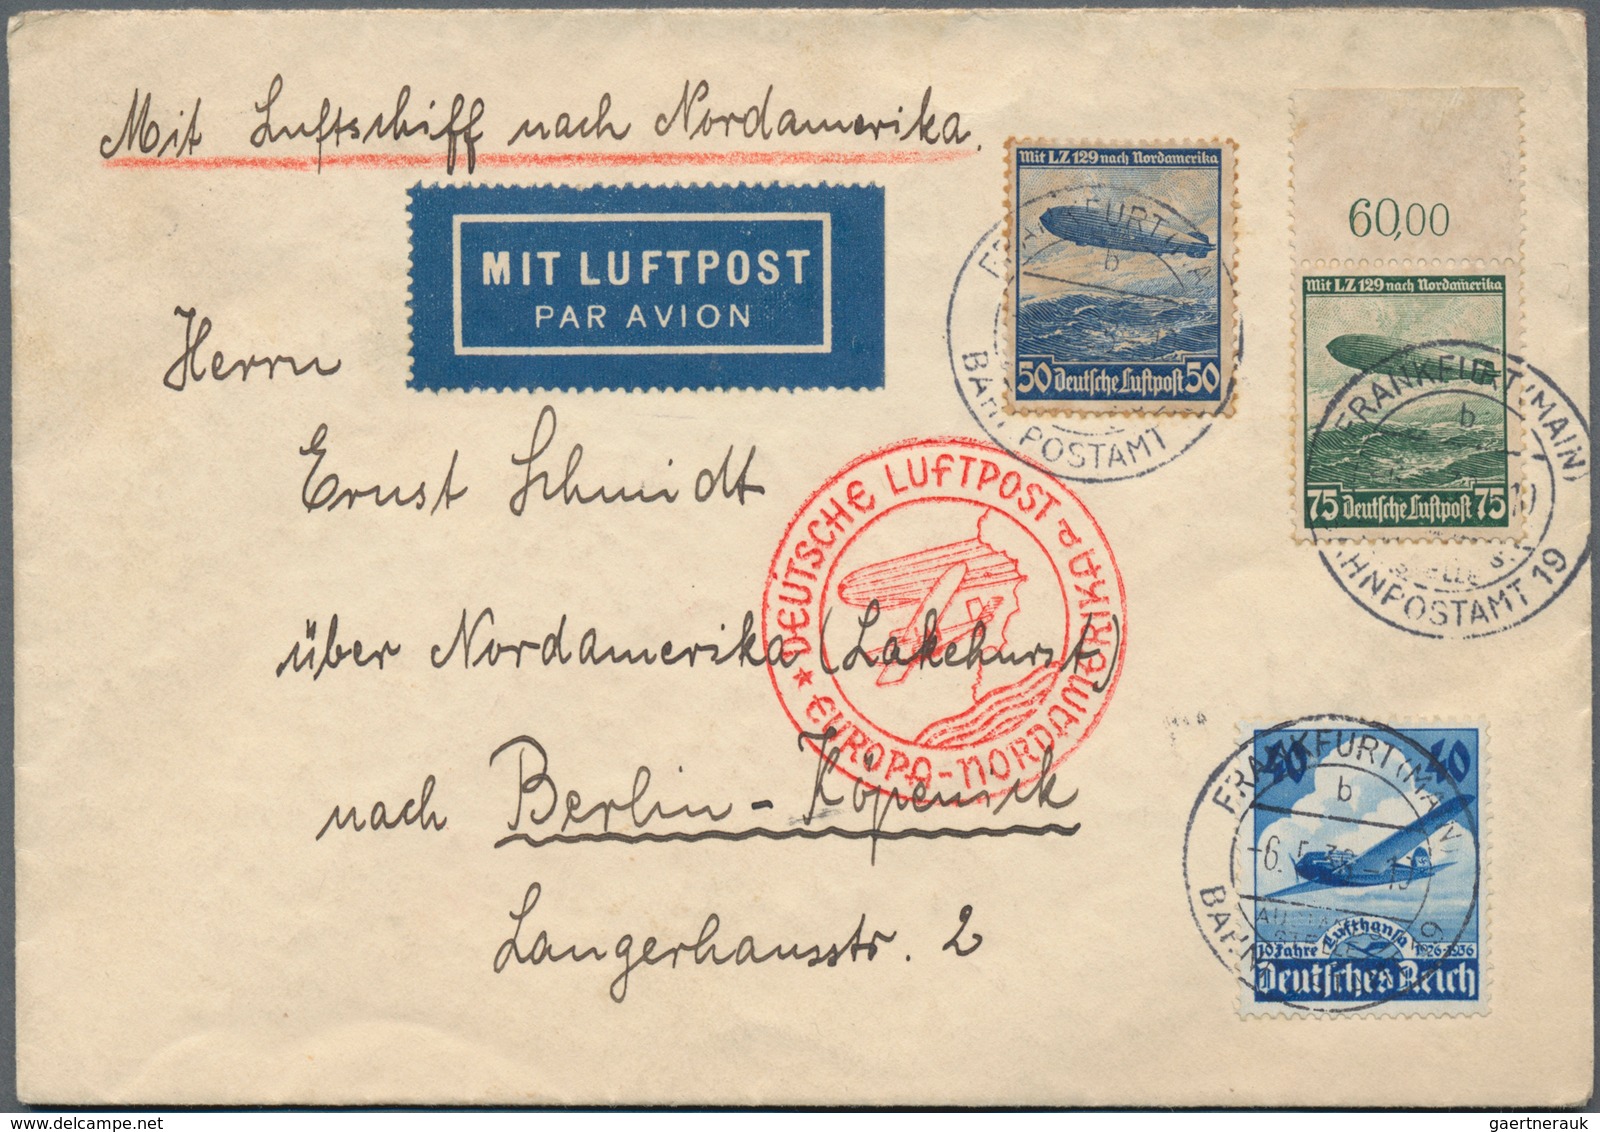 Mit Luftschiff nach Nordamerika.
MIT LUFTPOST
PAR AVION
Mit LZ 129 nach Nordamerika
50 Deutsche Luftpost 50
FRANKFURT (MAIN)
b
BAHNPOSTAMT
60,00
Mit LZ 129 nach Nordamerika
75 Deutsche Luftpost 75
FRANKFURT (MAIN)
b
BAHNPOSTAMT 19
Herrn
Ernst Schmidt
über Nordamerika (Lakehurst)
nach Berlin-Köpenick
Langerhansstr. 2
DEUTSCHE LUFTPOST
EUROPA-NORDAMERIKA
40 40
FRANKFURT (MAIN)
b
-6.5.36-
BAHNPOSTAMT 19
10 Jahre Lufthansa 1926-1936
Deutsches Reich
gaertnerauk @ delcampe.net